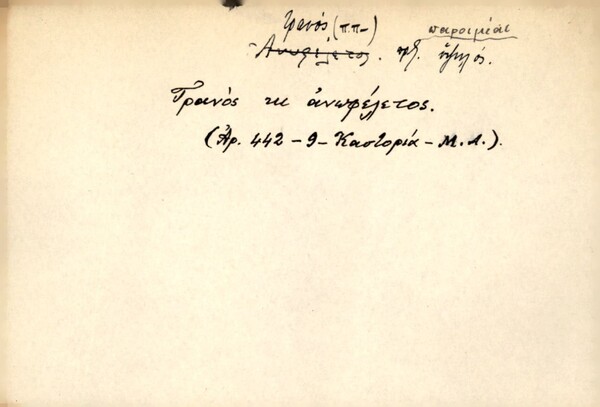 τρανός (π.π-) παροιμίαι
Ανωφέλετος. πβ. ὑψηλός.
Τρανὸς κι ἀνωφέλετος.
(Ἀρ. 442 - 9 - Καστοριά - Μ. Λ.).